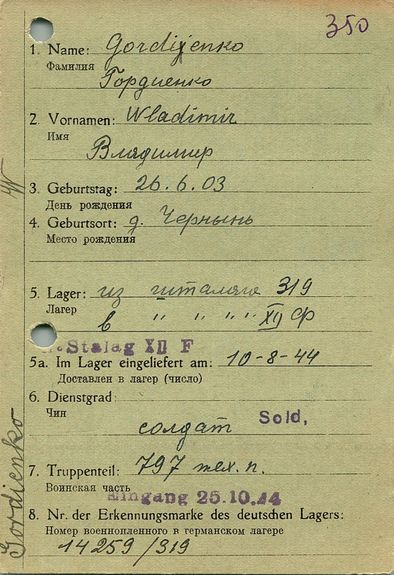 350
1. Name: Gordijenko
Фамилия
Гордиенко
2. Vornamen: Wladimir
Имя
Владимир
3. Geburtstag: 26.6.03
День рождения
4. Geburtsort: д. Чернынь
Место рождения
5. Lager: из шталага 319
Лагер
в " " " " XII Ф
Stalag XII F
5a. Im Lager eingeliefert am: 10-8-44
Доставлен в лагер (число)
6. Dienstgrad:
Чин
солдат Sold,
7. Truppenteil: 797 тех. п.
Воинская часть
Eingang 25.10.44
8. Nr. der Erkennungsmarke des deutschen Lagers:
Номер военнопленного в германском лагере
14259/319
Gordienko